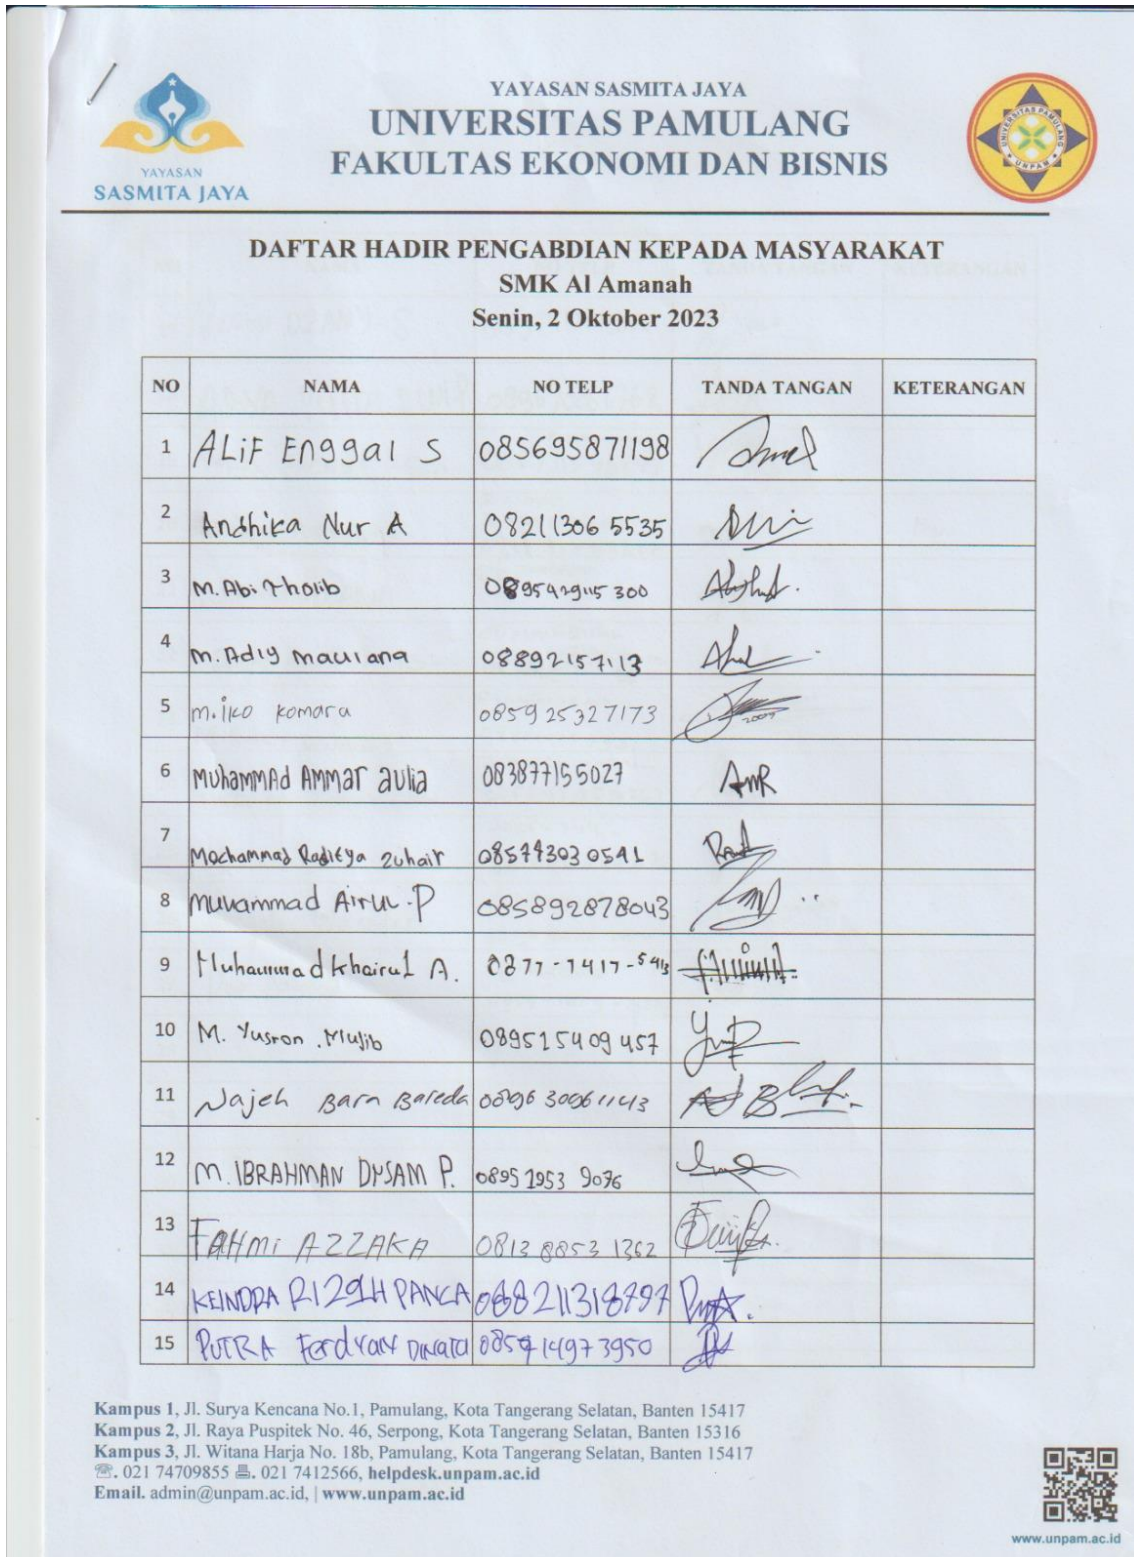 YAYASAN SASMITA JAYA
UNIVERSITAS PAMULANG
FAKULTAS EKONOMI DAN BISNIS
YAYASAN
SASMITA JAYA
UNIVERSITAS PAMULANG
UNPAM
DAFTAR HADIR PENGABDIAN KEPADA MASYARAKAT
SMK Al Amanah
Senin, 2 Oktober 2023
NO NAMA NO TELP TANDA TANGAN KETERANGAN
1 ALiF Enggal S 085695871198
2 Andhika Nur A 082113065535
3 M. Abi Tholib
4 M. Adly Maulana 08892157113
5 m. iko komara 085925327173
6 Muhammad Ammar aulia 083877155027 AMR
7 Mochammad Raditya Zuhair
8 Muhammad Airul . P 085892878043
9 Muhammad Khairul A. 0877-7417-5413
10 M. Yusron . Mujib 089515409457
11 Najeh Bara Bareda
12 M. IBRAHMAN DYSAM P. 0895 1953 9076
13 FAHMi AZZAKA 0813 8853 1362
14 KEINDRA RIZQIH PANCA 088211318797
15 PUTRA Ferdyan DINATA
Kampus 1, Jl. Surya Kencana No.1, Pamulang, Kota Tangerang Selatan, Banten 15417
Kampus 2, Jl. Raya Puspitek No. 46, Serpong, Kota Tangerang Selatan, Banten 15316
Kampus 3, Jl. Witana Harja No. 18b, Pamulang, Kota Tangerang Selatan, Banten 15417
☏. 021 74709855 🖷. 021 7412566, helpdesk.unpam.ac.id
Email. admin@unpam.ac.id, | www.unpam.ac.id
www.unpam.ac.id